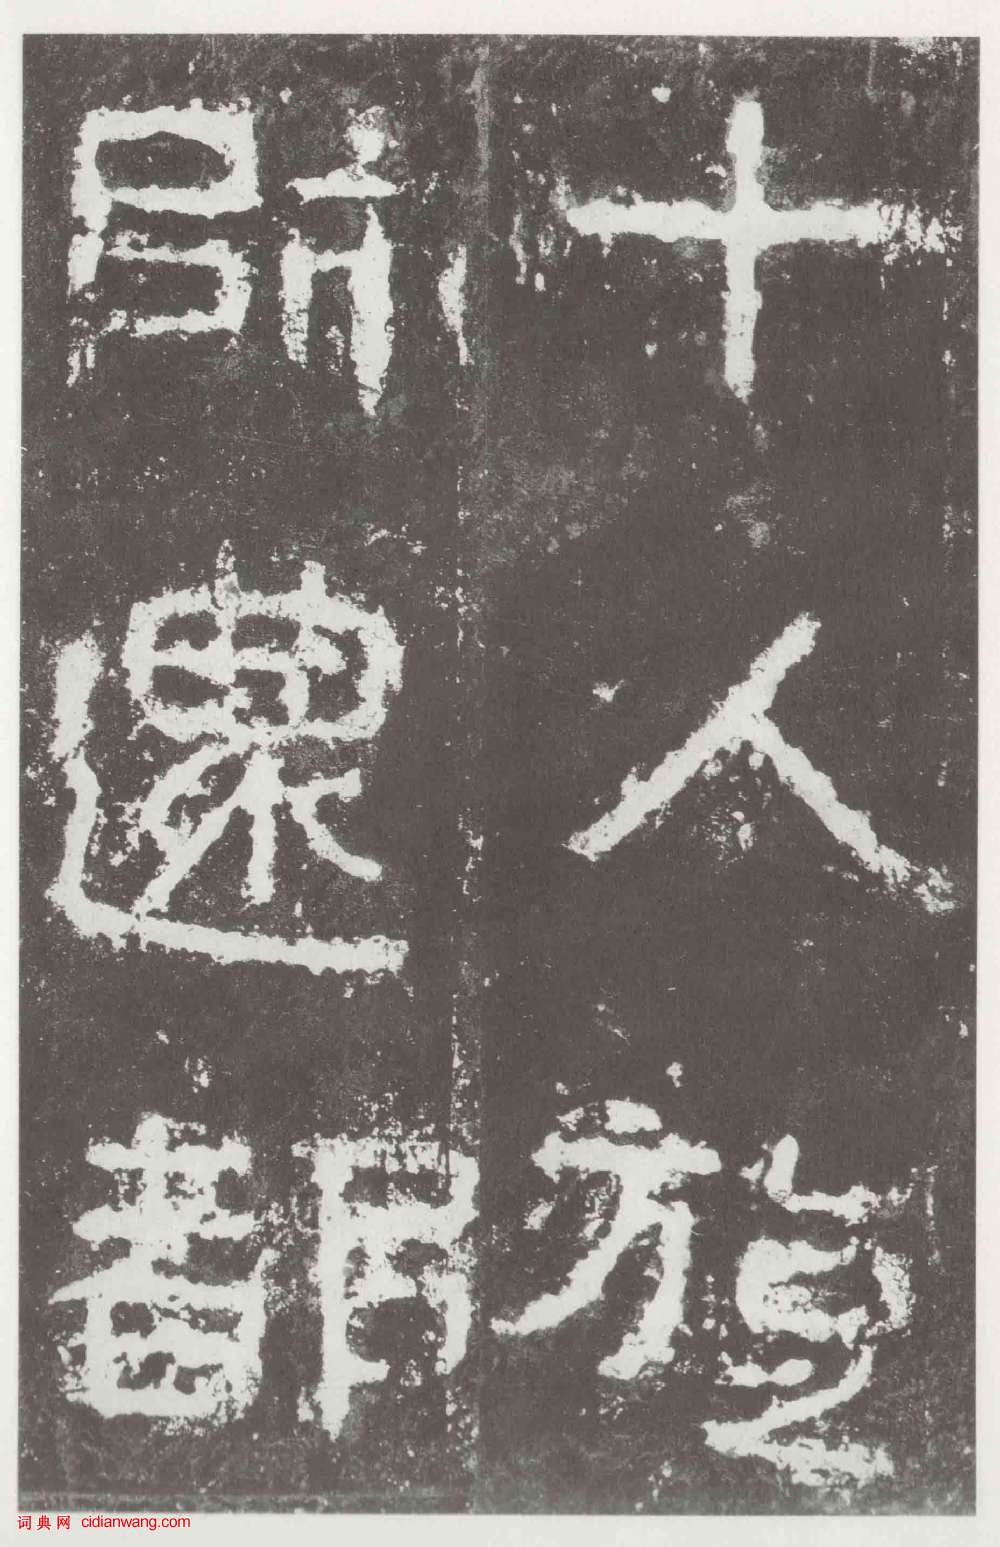 十人旋
師還都
词典网 cidianwang.com